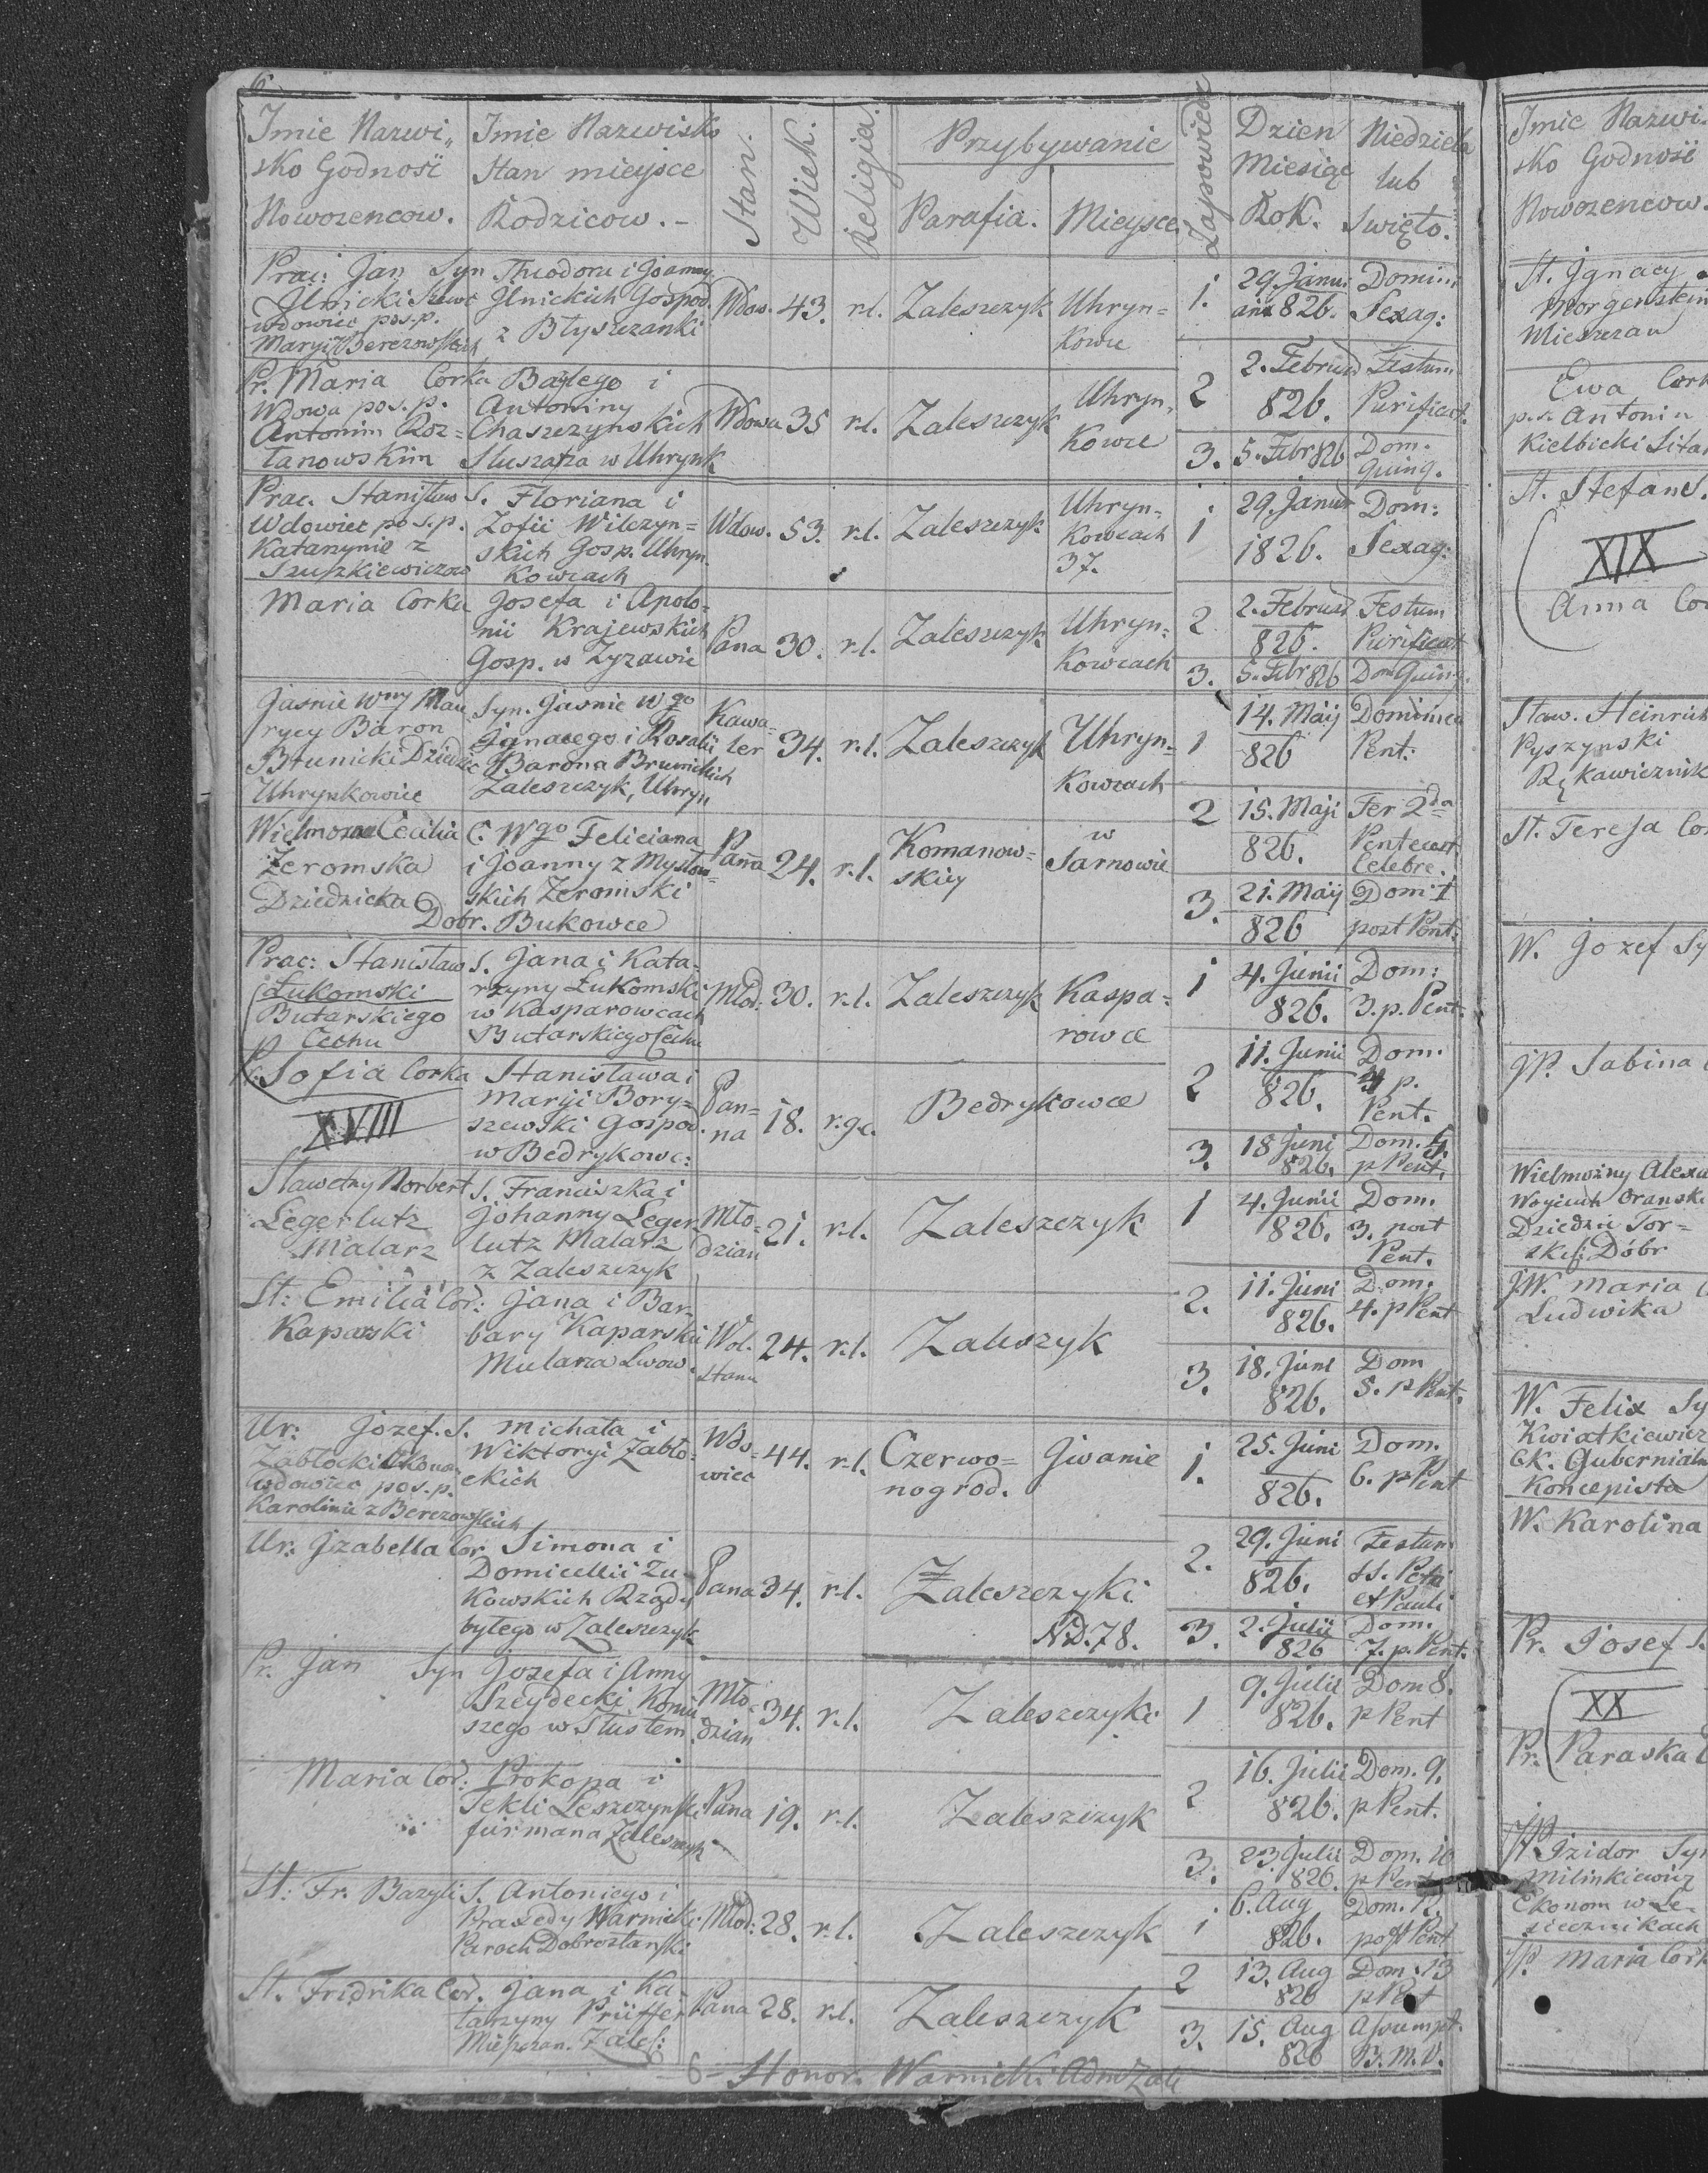 6
Imie Nazwi„ Imie Nazwisko Stan. Wiek. Religia. Przybywanie Zapowiedz Dzien Niedziela
sko Godnosi Stan mieysce Miesiąc lub
Nowozencow. Rodzicow. – Parafia. Mieysce. Rok. Swięto.
Prac: Jan Syn Theodora i Joanny
Ilnicki Szewc Ilnickich Gospod. Wdow. 43. r.l. Zaleszczyk Uhryn= 1. 29. Janu Domin:
wdowiec pos.p. z Błyszczanki kowce 826. Sexag:
Maryi z Berezowskich
Pr. Maria Corka Bazylego i 2 2. Februar Festum
Wdowa po s.p. Antoniny Wdowa 35 r.l. Zaleszczyk Uhryn= 826. Purificat.
Antonim Roz= Chaszczynskich kowce 3. 5. Febr 826 Dom.
łanowskim w Uhrynk Quinq.
Prac. Stanisław S. Floriana i Uhryn= 1 29. Januar Dom:
Wdowiec po s.p. Zofii Wilczyn= Wdow. 53. r.l. Zaleszczyk kowcach 1826. Sexag:
Katarzynie z skich Gosp. Uhryn 37.
Szuszkiewiczow kowcach
Maria Corka Josefa i Apolo= 2 2. Februar Festum
nii Krajewskich Pana 30. r.l. Zaleszczyk Uhryn= 826. Purificat
Gosp. w Zyzawie kowcach 3. 5. Febr 826 Dom Quinq.
Jasnie Wny Mau Syn. Jasnie Wgo Kawa= 1 14. Maij Dominica
rycy Baron Ignacego i Rosalii ler 34. r.l. Zaleszczyk Uhryn= 826 Pent:
Brunicki Dziedzic Barona Brunickich kowcach
Uhrynkowice Zaleszczyk, Uhryn 2 15. Maji Fer 2da
Wielmozna Cecilia C. Wgo Feliciana Panna 24. r.l. Komanow= w 826. Pentecost
Zeromska i Joanny z Mysłow= skiey Sarnowie Celebre.
Dziedzicka skich Zeromski 3. 21. Maij Dom: 1
Dobr. Bukowce 826 post Pent:
Prac: Stanisław S. Jana i Kata= 1 4. Junii Dom:
Łukomski rzyny Łukomski Mlod: 30. r.l. Zaleszczyk Kaspa= 826. 3. p. Pent:
Butarskiego w Kasparowcach rowce
Cechu Butarskiego Cechu
P. Sofia Corka Stanisława i 2 11. Junii Dom:
XVIII Maryi Bory= Pan= 18. r.g.c. Bedrykowce 826. 4 p.
szewski Gospod. na Pent.
w Bedrykowc: 3. 18 Juni Dom. 5.
826. p Pent.
Sławetny Norbert S. Franciszka i 1 4. Junii Dom.
Legerlutz Johanny Leger= Mło= 21. r.l. Zaleszczyk 826. 3. post
Malarz lutz Malarz dzian Pent.
z Zaleszczyk
St: Emilia Cor: Jana i Bar= 2. 11. Juni Dom.
Kaparski bary Kaparski Wol. 24. r.l. Zaleszyk 826. 4. p Pent
Mulara Lwow. stanu 3. 18. Juni Dom
826. 5. p Pent.
Ur: Jozef. S. Michała i Wdo= 1. 25. Juni Dom.
Zabłocki Ekonom Wiktoryi Zabło= wiec 44. r.l. Czerwo= Iwanie 826. 6. p Pent
wdowiec po s.p. ckich nogrod.
Karolinie z Berezowskich
Ur: Izabella Cor Simona i 2. 29. Juni Festum
Domicellii Zu= Pana 34. r.l. Zaleszczyki 826. SS. Petri
kowskich Rządy et Pauli
byłego w Zaleszczyk ND. 78. 3. 2. Julii Dom.
826 7. p. Pent.
Pr. Jan Syn Jozefa i Anny Mło= 1 9. Julii Dom 8.
Szeydecki Komi dzian 34. r.l. Zaleszczyki 826. p Pent
szego w Tłustem
Maria Cor: Prokopa i 2 16. Julii Dom. 9.
Tekli Leszczynski Pana 19. r.l. Zaleszczyk 826. p Pent.
furmana Zaleszczyk 3. 23. Julii Dom. 10
826. p Pent
St: Fr. Bazyli S. Antoniego i 1 6. Aug Dom. 12.
Praxedy Warnicki Młod: 28. r.l. Zaleszczyk 826. post Pent
Paroch Dobroztanski 2 13. Aug Dom. 13
826 p Pent
St. Fridrika Cor. Jana i Ka= Pana 28. r.l. Zaleszczyk
tarzyny Prüffer 3. 15. Aug Assumpt.
Mieszczan. Zales: 826 B. M. V.
6– Honor. Warnicki Adm Zale
Imie Nazwi
sko Godnosi
Nowozencow.
St. Ignacy
Morgenstein
Mieszczan
Ewa Cork
p.s. Antonin
Kielbicki
St. Stefan S.
XIX
Anna Co
Sław. Heinrich
Pyszynski
Rękawicznik
St. Teresa Co
W. Jozef Sy
JP. Sabina
Wielmożny Alexa
Woyciech Oranski
Dziedzic Tor=
skef: Dóbr
JW. Maria C
Ludwika
W. Felix Sy
Kwiatkiewicz
CK. Gubernialn
Koncepista
W. Karolina
Pr. Josef S.
XX
Pr. Paraska
JP. Izidor Syn
Milinkiewicz
Ekonom w Le=
siecznikach
JP. Maria Cork